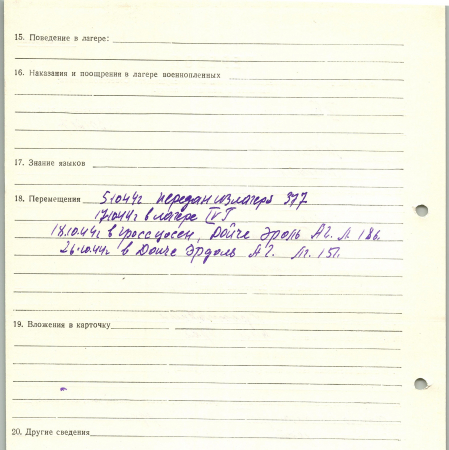 15. Поведение в лагере:
16. Наказания и поощрения в лагере военнопленных
17. Знание языков
18. Перемещения 5.10.44г передан из лагеря 317
17.10.44г в лагере IV Г
18.10.44г в Гроссцосен, Дойче Эроль А.Г. Л. 186.
26.10.44г. в Дойче Эрдоль А.Г. Лг. 151.
19. Вложения в карточку
20. Другие сведения